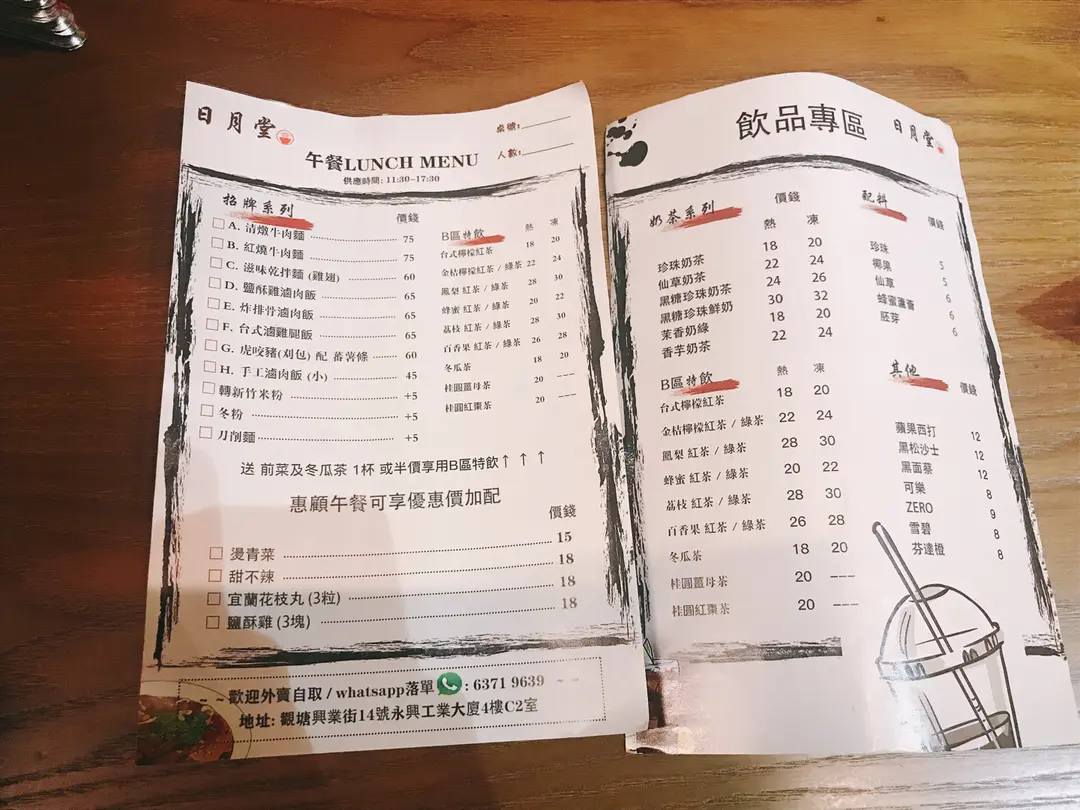 日月堂
桌號:
人數:
午餐LUNCH MENU
供應時間: 11:30~17:30
招牌系列 價錢
A. 清燉牛肉麵 75
B. 紅燒牛肉麵 75
C. 滋味乾拌麵 (雞翅) 60
D. 鹽酥雞滷肉飯 65
E. 炸排骨滷肉飯 65
F. 台式滷雞腿飯 65
G. 虎咬豬(刈包) 配 蕃薯條 60
H. 手工滷肉飯 (小) 45
轉新竹米粉 +5
冬粉 +5
刀削麵 +5
B區特飲 熱 凍
台式檸檬紅茶 18 20
金桔檸檬紅茶 / 綠茶 22 24
鳳梨 紅茶 / 綠茶 28 30
蜂蜜 紅茶 / 綠茶 20 22
荔枝 紅茶 / 綠茶 28 30
百香果 紅茶 / 綠茶 26 28
冬瓜茶 18 20
桂圓薑母茶 20 ---
桂圓紅棗茶 20 ---
送 前菜及冬瓜茶 1杯 或半價享用B區特飲↑ ↑ ↑
惠顧午餐可享優惠價加配
價錢
燙青菜 15
甜不辣 18
宜蘭花枝丸 (3粒) 18
鹽酥雞 (3塊) 18
~ ~ 歡迎外賣自取 / whatsapp落單 : 6371 9639 ~ ~
地址: 觀塘興業街14號永興工業大廈4樓C2室
飲品專區 日月堂
奶茶系列 價錢
熱 凍
珍珠奶茶 18 20
仙草奶茶 22 24
黑糖珍珠奶茶 24 26
黑糖珍珠鮮奶 30 32
茉香奶綠 18 20
香芋奶茶 22 24
B區特飲 熱 凍
台式檸檬紅茶 18 20
金桔檸檬紅茶 / 綠茶 22 24
鳳梨 紅茶 / 綠茶 28 30
蜂蜜 紅茶 / 綠茶 20 22
荔枝 紅茶 / 綠茶 28 30
百香果 紅茶 / 綠茶 26 28
冬瓜茶 18 20
桂圓薑母茶 20 ---
桂圓紅棗茶 20 ---
配料 價錢
珍珠 5
椰果 5
仙草 6
蜂蜜蘆薈 6
胚芽 6
其他 價錢
蘋果西打 12
黑松沙士 12
黑面蔡 12
可樂 8
ZERO 9
雪碧 8
芬達橙 8